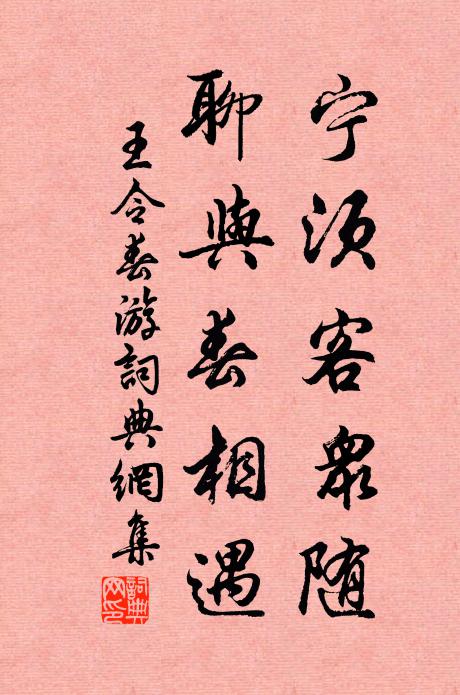 宁须客众随
聊与春相遇
王令春游词典網集
詞典网印